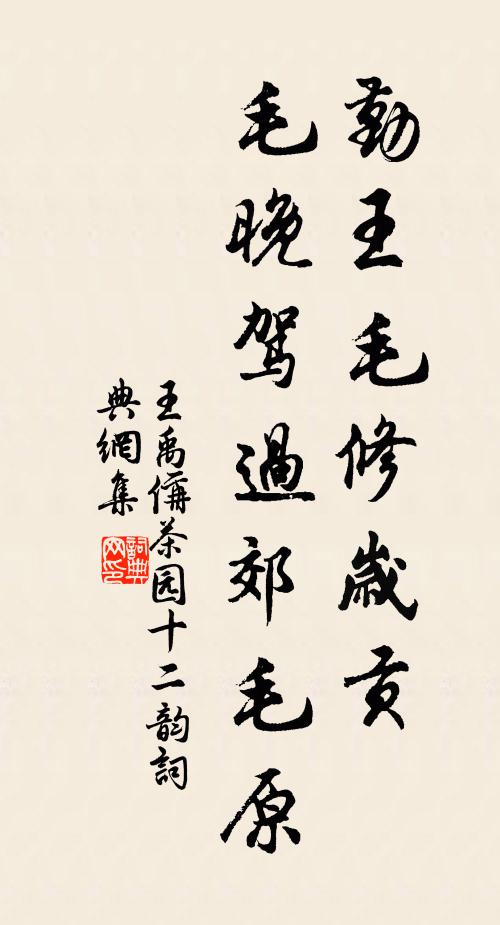 勤王毛修歲貢
毛晚驾過郊毛原
王禹偁茶园十二韵詞
典網集
詞典网印